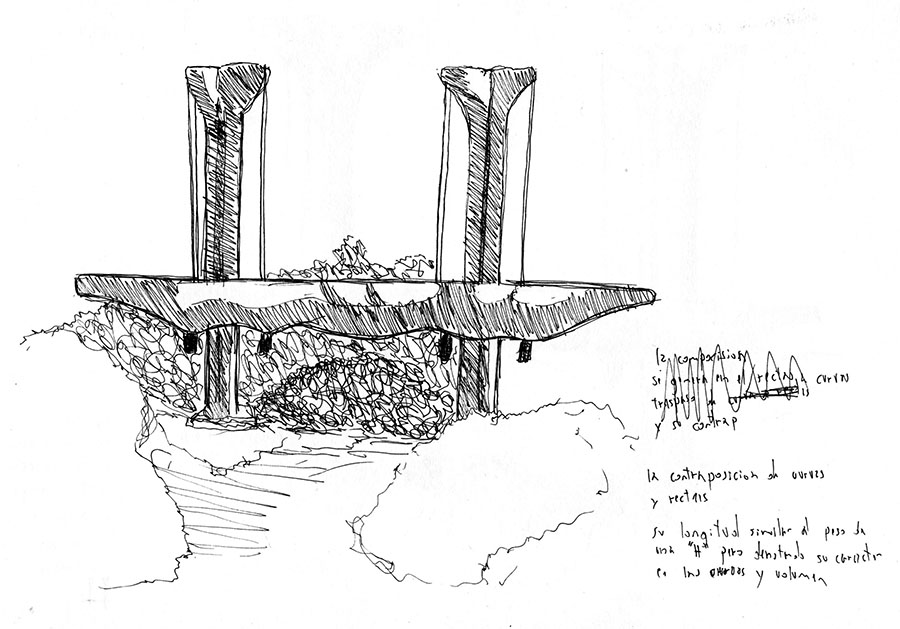 la composicion
se genera en el recto a curvas
y su contrap
la contraposicion de curvas
y rectas
su longitud similar al peso de
una "H" pero denotando su caracter
en las y volumen